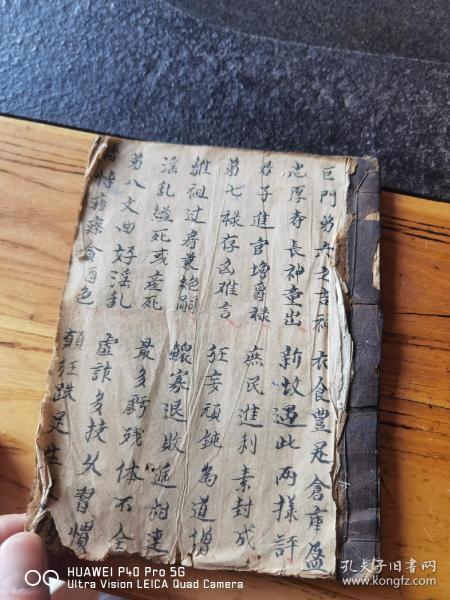 巨門第六之吉神 衣食豊足倉庫盈
忠厚寿長神童出 新故遇此两様評
君子進官增爵禄 庶民進利素封成
第七禄存凶难言 狂妄頑鈍為道僧
離祖过房兼絶嗣 鰥寡退敗遞相連
淫乱縊死或産死 最多虧残体不全
第八文曲好淫乱 虚詐多技久習慣
痨瘵貪酒色 顛狂跌足生
HUAWEI P40 Pro 5G
Ultra Vision LEICA Quad Camera
孔夫子旧書网